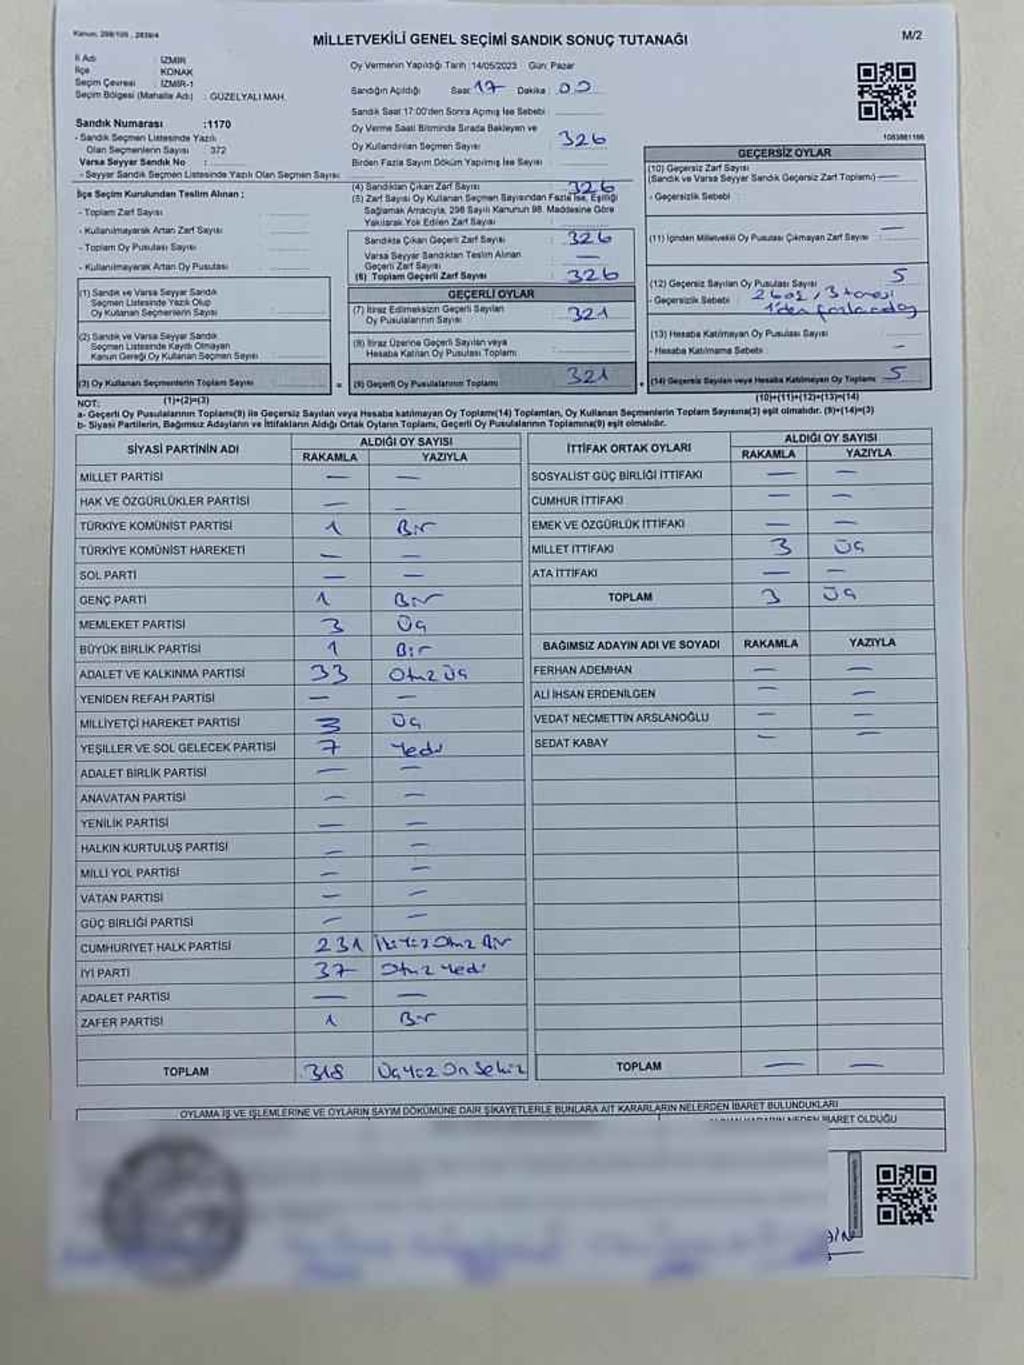 Kanun: 298/105 , 2839/4
MİLLETVEKİLİ GENEL SEÇİMİ SANDIK SONUÇ TUTANAĞI
M/2
İl Adı : İZMİR
İlçe : KONAK
Seçim Çevresi : İZMİR-1
Seçim Bölgesi (Mahalle Adı) : GÜZELYALI MAH.
Sandık Numarası :1170
- Sandık Seçmen Listesinde Yazılı
Olan Seçmenlerin Sayısı : 372
Varsa Seyyar Sandık No :
- Seyyar Sandık Seçmen Listesinde Yazılı Olan Seçmen Sayısı:
Oy Vermenin Yapıldığı Tarih :14/05/2023 Gün: Pazar
Sandığın Açıldığı Saat: 17 Dakika : 00
Sandık Saat 17:00'den Sonra Açılmış İse Sebebi :
Oy Verme Saati Bitiminde Sırada Bekleyen ve
Oy Kullandırılan Seçmen Sayısı : 326
Birden Fazla Sayım Döküm Yapılmış İse Sayısı :
1083881166
İlçe Seçim Kurulundan Teslim Alınan ;
- Toplam Zarf Sayısı :
- Kullanılmayarak Artan Zarf Sayısı :
- Toplam Oy Pusulası Sayısı :
- Kullanılmayarak Artan Oy Pusulası :
(1) Sandık ve Varsa Seyyar Sandık
Seçmen Listesinde Yazılı Olup
Oy Kullanan Seçmenlerin Sayısı :
(2) Sandık ve Varsa Seyyar Sandık
Seçmen Listesinde Kayıtlı Olmayan
Kanun Gereği Oy Kullanan Seçmen Sayısı :
(3) Oy Kullanan Seçmenlerin Toplam Sayısı :
(1)+(2)=(3)
(4) Sandıktan Çıkan Zarf Sayısı : 326
(5) Zarf Sayısı Oy Kullanan Seçmen Sayısından Fazla İse, Eşitliği
Sağlamak Amacıyla, 298 Sayılı Kanunun 98. Maddesine Göre
Yakılarak Yok Edilen Zarf Sayısı :
Sandıkta Çıkan Geçerli Zarf Sayısı : 326
Varsa Seyyar Sandıktan Teslim Alınan
Geçerli Zarf Sayısı : —
(6) Toplam Geçerli Zarf Sayısı : 326
GEÇERLİ OYLAR
(7) İtiraz Edilmeksizin Geçerli Sayılan
Oy Pusulalarının Sayısı : 321
(8) İtiraz Üzerine Geçerli Sayılan veya
Hesaba Katılan Oy Pusulası Toplamı :
(9) Geçerli Oy Pusulalarının Toplamı : 321
GEÇERSİZ OYLAR
(10) Geçersiz Zarf Sayısı
(Sandık ve Varsa Seyyar Sandık Geçersiz Zarf Toplamı) : —
- Geçersizlik Sebebi :
(11) İçinden Milletvekili Oy Pusulası Çıkmayan Zarf Sayısı : —
(12) Geçersiz Sayılan Oy Pusulası Sayısı : 5
- Geçersizlik Sebebi : 3 tanesi
1'den
(13) Hesaba Katılmayan Oy Pusulası Sayısı :
- Hesaba Katılmama Sebebi : —
(14) Geçersiz Sayılan veya Hesaba Katılmayan Oy Toplamı : 5
(10)+(11)+(12)+(13)=(14)
NOT:
a- Geçerli Oy Pusulalarının Toplamı(9) ile Geçersiz Sayılan veya Hesaba katılmayan Oy Toplamı(14) Toplamları, Oy Kullanan Seçmenlerin Toplam Sayısına(3) eşit olmalıdır. (9)+(14)=(3)
b- Siyasi Partilerin, Bağımsız Adayların ve İttifakların Aldığı Ortak Oyların Toplamı, Geçerli Oy Pusulalarının Toplamına(9) eşit olmalıdır.
SİYASİ PARTİNİN ADI ALDIĞI OY SAYISI
RAKAMLA YAZIYLA
MİLLET PARTİSİ — —
HAK VE ÖZGÜRLÜKLER PARTİSİ — —
TÜRKİYE KOMÜNİST PARTİSİ 1 Bir
TÜRKİYE KOMÜNİST HAREKETİ — —
SOL PARTİ — —
GENÇ PARTİ 1 Bir
MEMLEKET PARTİSİ 3 Üç
BÜYÜK BİRLİK PARTİSİ 1 Bir
ADALET VE KALKINMA PARTİSİ 33 Otuz Üç
YENİDEN REFAH PARTİSİ — —
MİLLİYETÇİ HAREKET PARTİSİ 3 Üç
YEŞİLLER VE SOL GELECEK PARTİSİ 7 Yedi
ADALET BİRLİK PARTİSİ — —
ANAVATAN PARTİSİ — —
YENİLİK PARTİSİ — —
HALKIN KURTULUŞ PARTİSİ — —
MİLLİ YOL PARTİSİ — —
VATAN PARTİSİ — —
GÜÇ BİRLİĞİ PARTİSİ — —
CUMHURİYET HALK PARTİSİ 231 İki Yüz Otuz Bir
İYİ PARTİ 37 Otuz Yedi
ADALET PARTİSİ — —
ZAFER PARTİSİ 1 Bir
TOPLAM 318 Üç Yüz On Sekiz
İTTİFAK ORTAK OYLARI ALDIĞI OY SAYISI
RAKAMLA YAZIYLA
SOSYALİST GÜÇ BİRLİĞİ İTTİFAKI — —
CUMHUR İTTİFAKI — —
EMEK VE ÖZGÜRLÜK İTTİFAKI — —
MİLLET İTTİFAKI 3 Üç
ATA İTTİFAKI — —
TOPLAM 3 Üç
BAĞIMSIZ ADAYIN ADI VE SOYADI RAKAMLA YAZIYLA
FERHAN ADEMHAN — —
ALİ İHSAN ERDENİLGEN — —
VEDAT NECMETTİN ARSLANOĞLU — —
SEDAT KABAY — —
TOPLAM — —
OYLAMA İŞ VE İŞLEMLERİNE VE OYLARIN SAYIM DÖKÜMÜNE DAİR ŞİKAYETLERLE BUNLARA AİT KARARLARIN NELERDEN İBARET BULUNDUKLARI
İBARET OLDUĞU